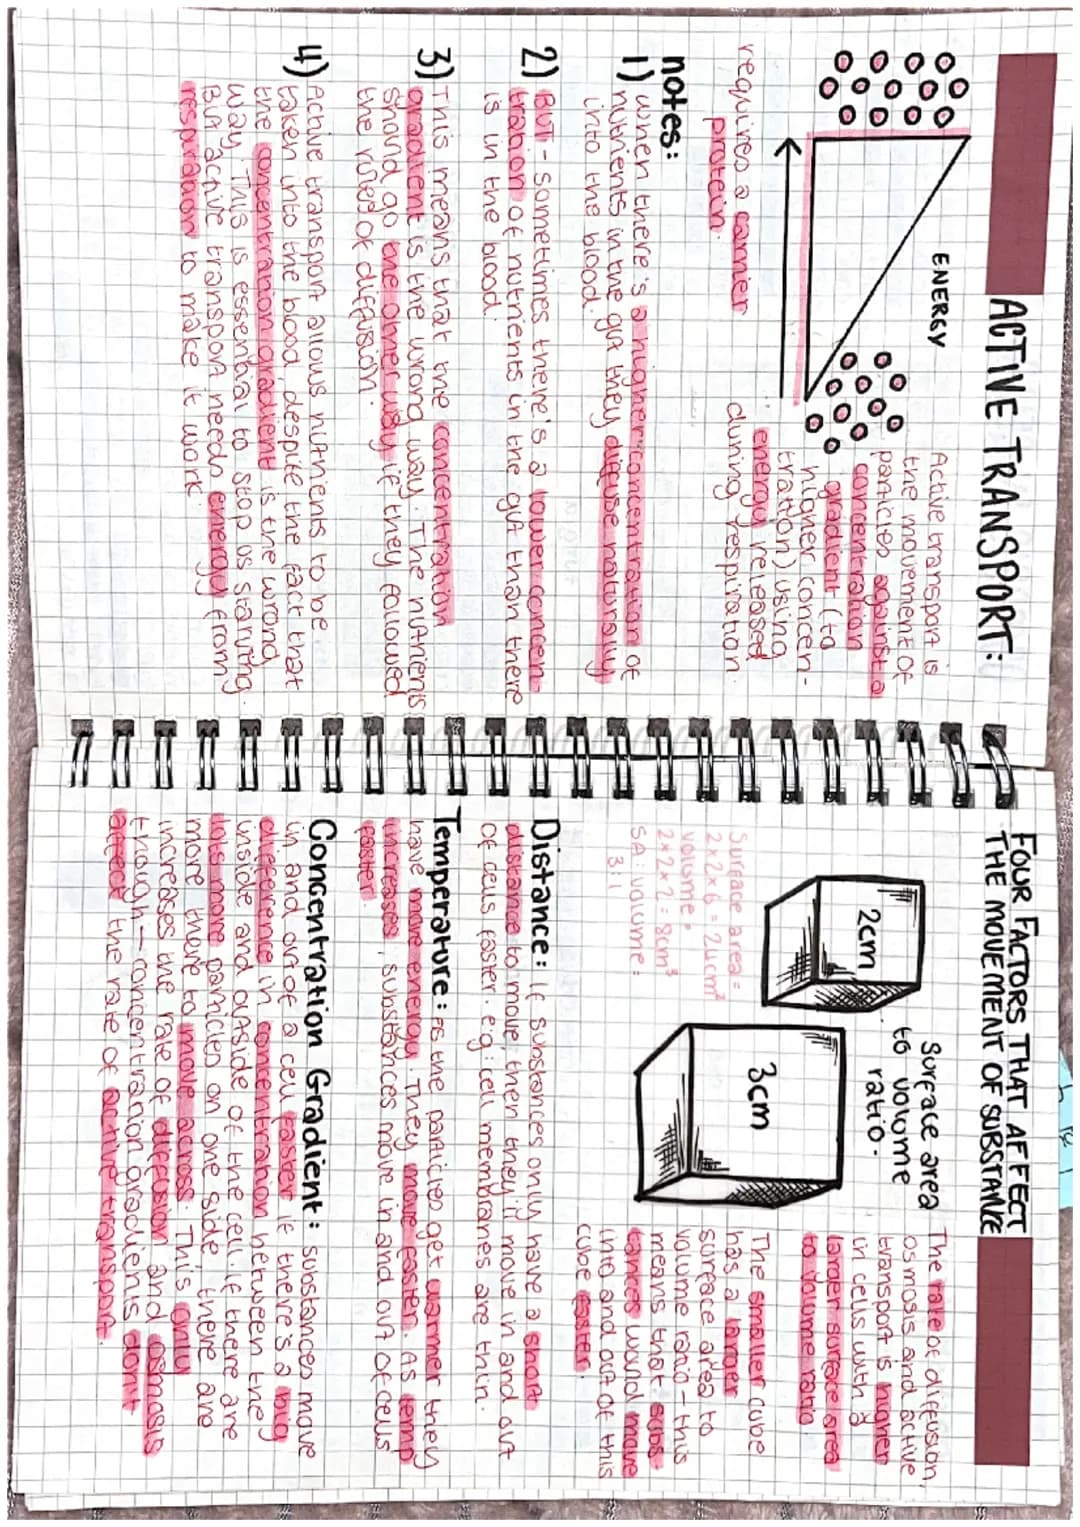 ACTIVE TRANSPORT:
ENERGY
Active transport is
the movement of
particles against a
concentration
gradient (to
higher concen-
tration) using
energy released
during respiration.
requires a carrier
protein.
notes:
1) when there's a higher concentration of
nutrients in the gut they diffuse naturally
into the blood.
2) BUT - sometimes there's a lower concen-
tration of nutrients in the gut than there
is in the blood.
3) This means that the concentration
gradient is the wrong way. The nutrients
should go the other way if they followed
the rules of diffusion.
4) Active transport allows nutrients to be
taken into the blood, despite the fact that
the concentration gradient is the wrong
way. This is essential to stop us starving.
But active transport needs energy from
respiration to make it work.
FOUR FACTORS THAT AFFECT
THE MOVEMENT OF SUBSTANCE
2cm
3cm
Surface area
to volume
ratio.
The rate of diffusion,
osmosis and active
transport is higher
in cells with a
larger surface area
to volume ratio.
The smaller cube
has a larger
surface area to
volume ratio - this
means that subs-
tances would move
into and out of this
cube faster.
Surface area =
2×2×6 = 24cm²
volume =
2×2×2 = 8cm³
SA : volume =
3:1
Distance: if substances only have a short
distance to move, then they'll move in and out
of cells faster. e.g: cell membranes are thin.
Temperature: as the particles get warmer they
have more energy. They move faster. As temp
increases, substances move in and out of cells
faster.
Concentration Gradient: substances move
in and out of a cell faster if there's a big
difference in concentration between the
inside and outside of the cell. if there are
lots more particles on one side, there are
more there to move across. This only
increases the rate of diffusion and osmosis
though - concentration gradients don't
affect the rate of active transport.